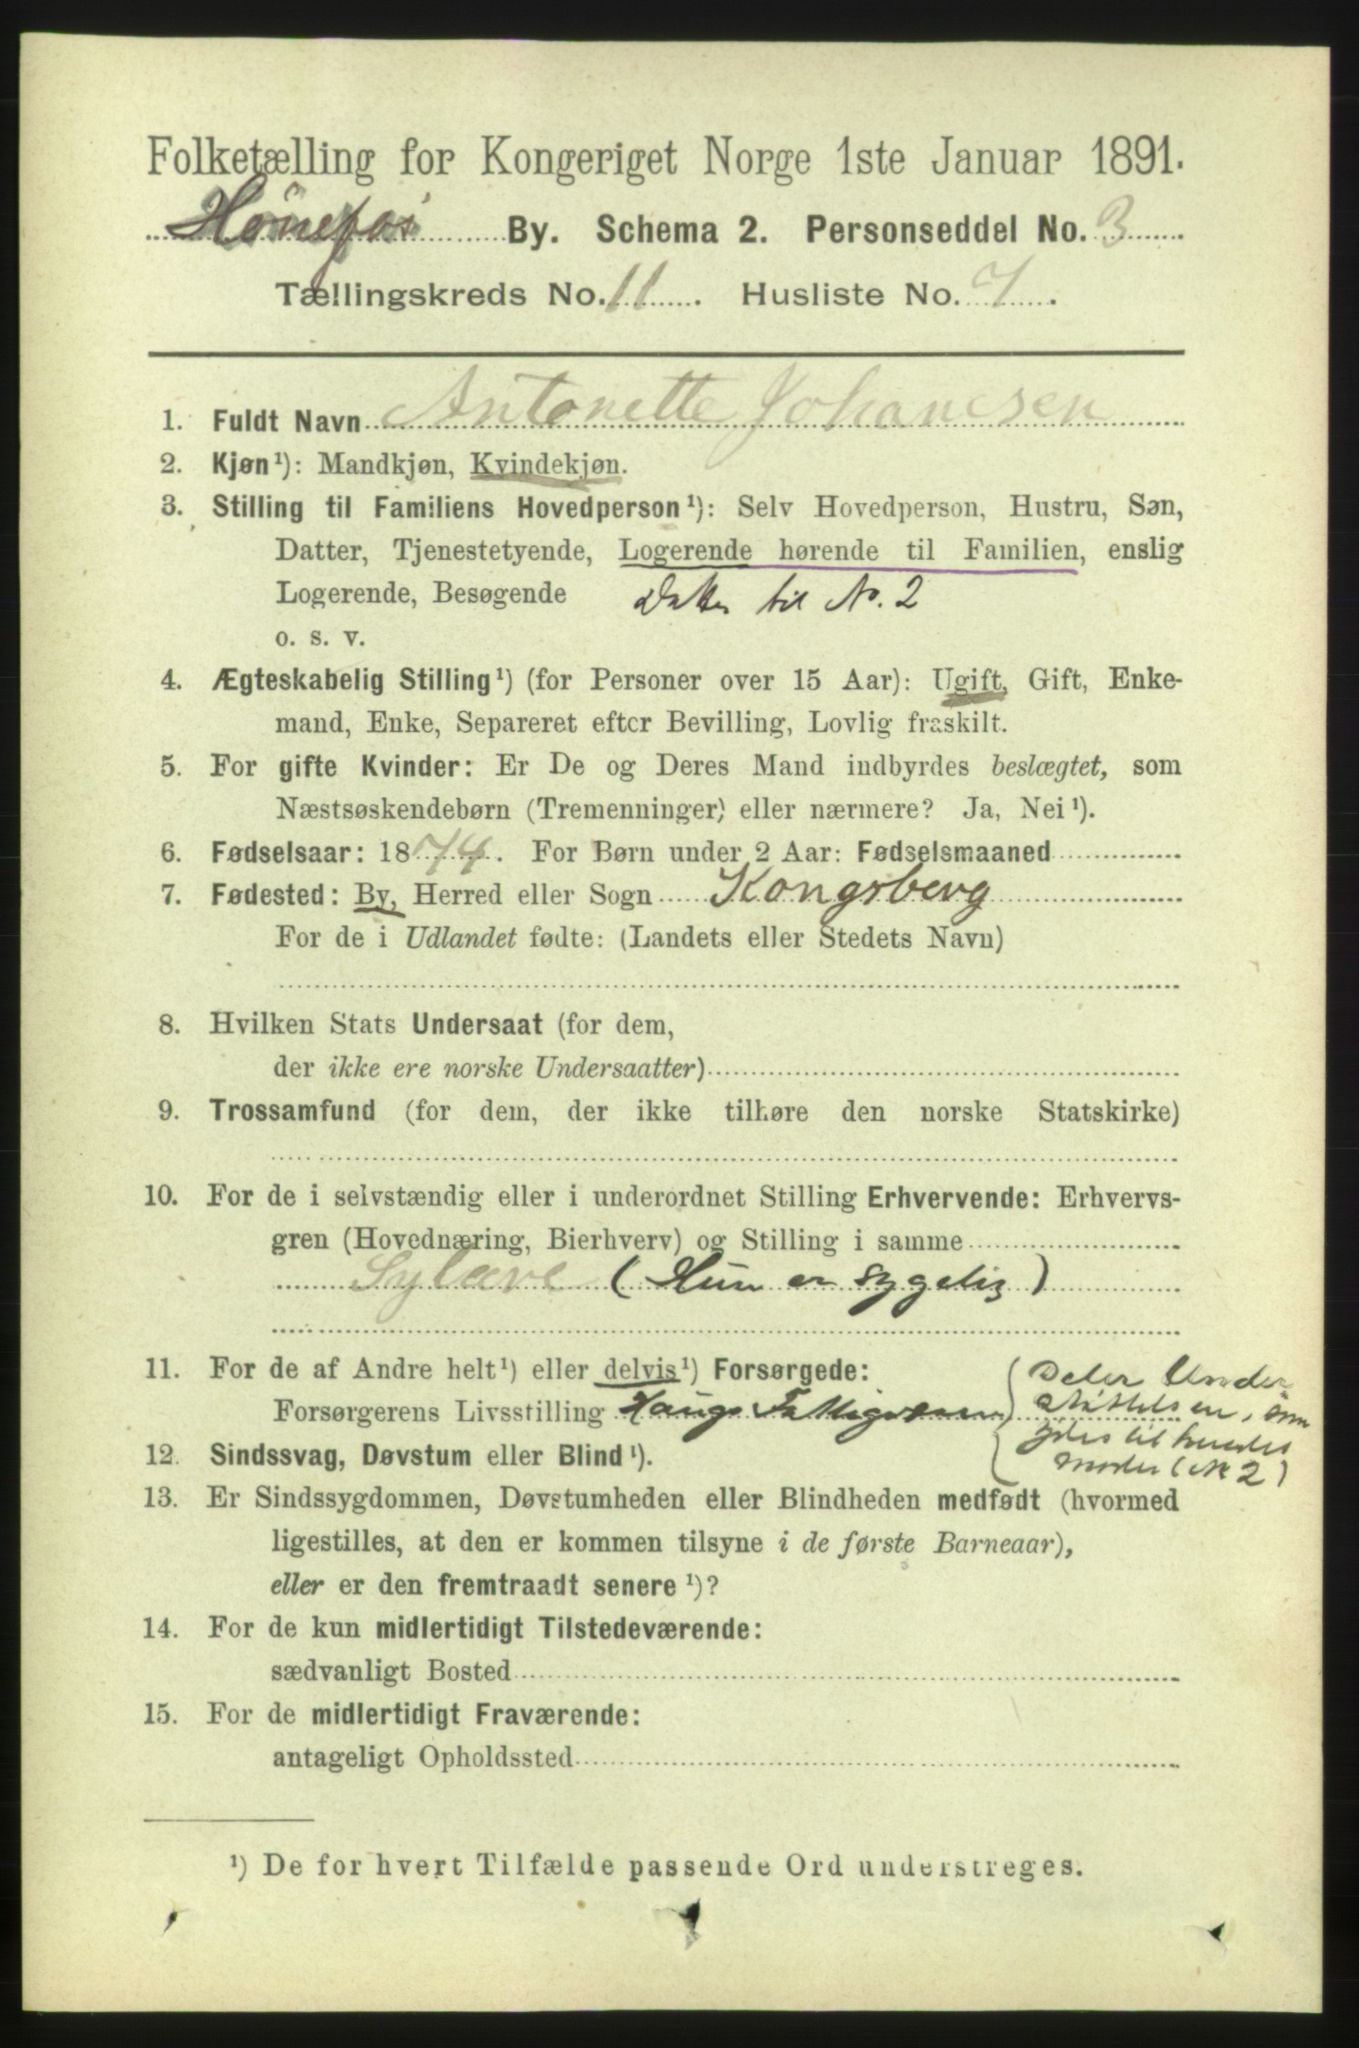 Folketælling for Kongeriget Norge 1ste Januar 1891.
Hønefos By. Schema 2. Personseddel No. 3
Tællingskreds No. 11. Husliste No. 7.
1. Fuldt Navn Antonette Johannesen
2. Kjøn¹): Mandkjøn, Kvindekjøn.
3. Stilling til Familiens Hovedperson¹): Selv Hovedperson, Hustru, Søn,
Datter, Tjenestetyende, Logerende hørende til Familien, enslig
Logerende, Besøgende Datter til No. 2
o. s. v.
4. Ægteskabelig Stilling¹) (for Personer over 15 Aar): Ugift, Gift, Enke-
mand, Enke, Separeret efter Bevilling, Lovlig fraskilt.
5. For gifte Kvinder: Er De og Deres Mand indbyrdes beslægtet, som
Næstsøskendebørn (Tremenninger) eller nærmere? Ja, Nei¹).
6. Fødselsaar: 1874. For Børn under 2 Aar: Fødselsmaaned
7. Fødested: By, Herred eller Sogn Kongsberg
For de i Udlandet fødte: (Landets eller Stedets Navn)
8. Hvilken Stats Undersaat (for dem,
der ikke ere norske Undersaatter)
9. Trossamfund (for dem, der ikke tilhøre den norske Statskirke)
10. For de i selvstændig eller i underordnet Stilling Erhvervende: Erhvervs-
gren (Hovednæring, Bierhverv) og Stilling i samme
Sylære (Hun er sygelig)
11. For de af Andre helt¹) eller delvis¹) Forsørgede:
Forsørgerens Livsstilling Haugs Fattigvæsen
Deler Under
støttelsen, som
ydes til hendes
moder (No 2)
12. Sindssvag, Døvstum eller Blind¹).
13. Er Sindssygdommen, Døvstumheden eller Blindheden medfødt (hvormed
ligestilles, at den er kommen tilsyne i de første Barneaar),
eller er den fremtraadt senere¹)?
14. For de kun midlertidigt Tilstedeværende:
sædvanligt Bosted
15. For de midlertidigt Fraværende:
antageligt Opholdssted
¹) De for hvert Tilfælde passende Ord understreges.